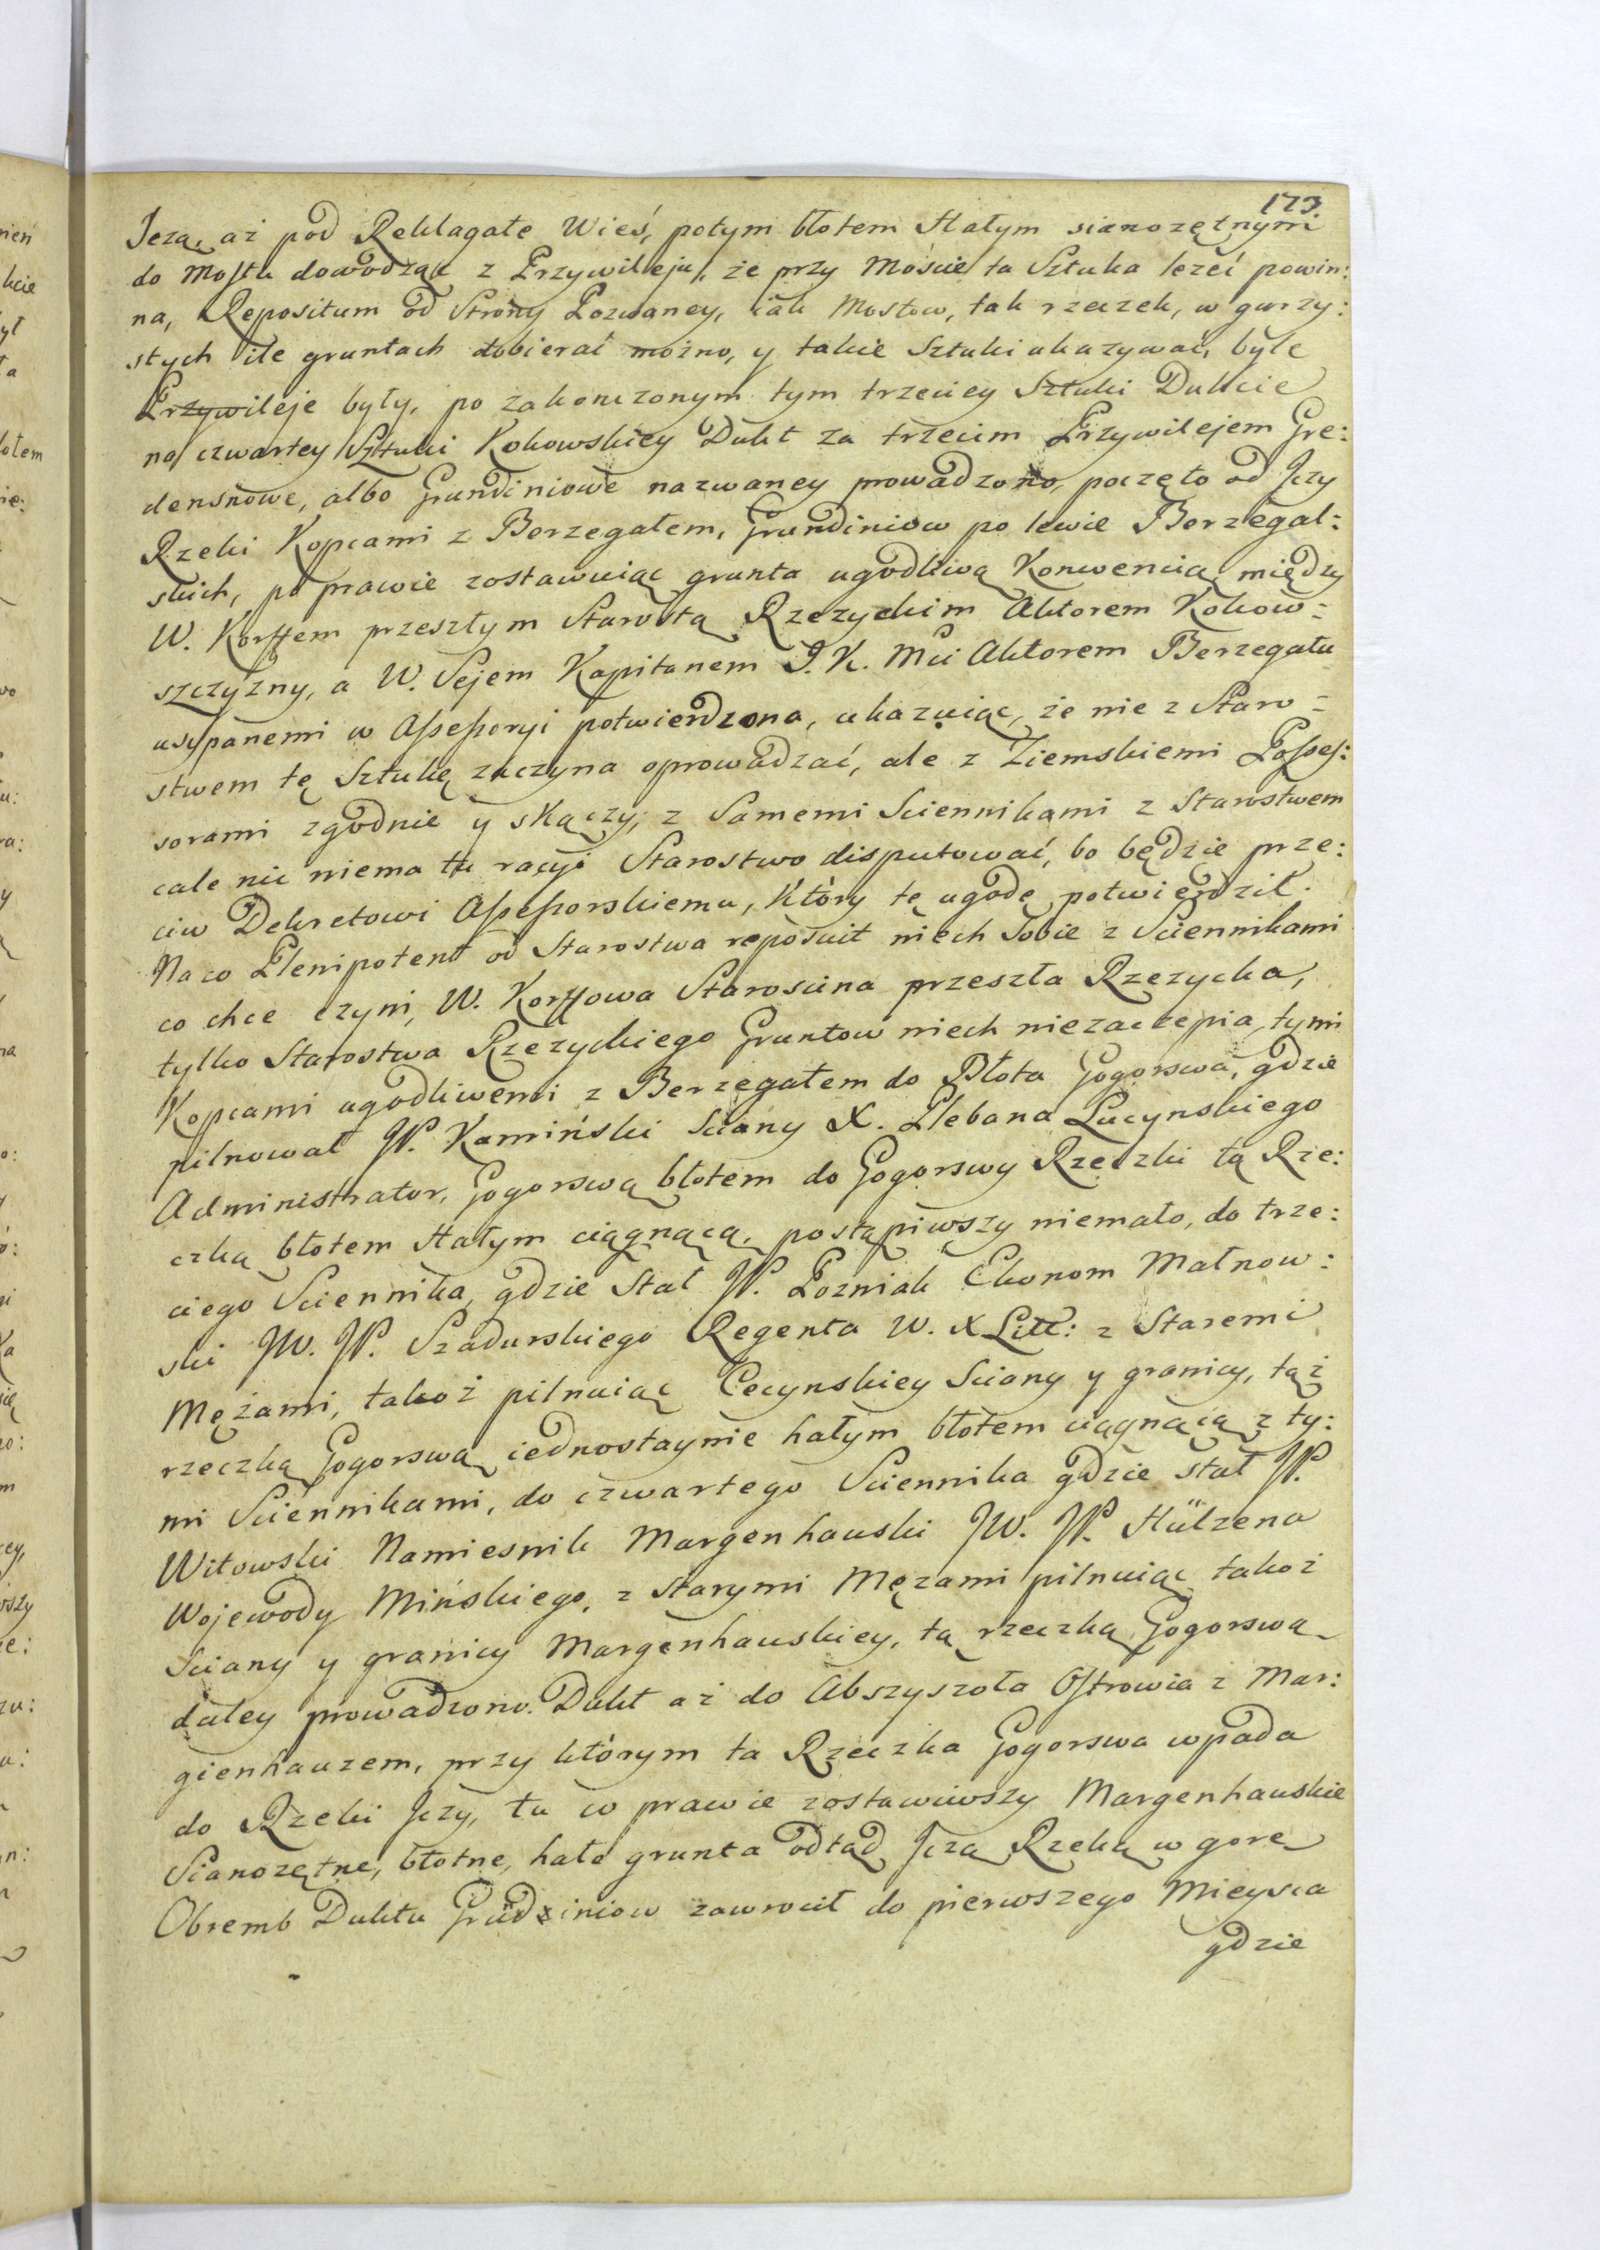 173.
Jeza, aż pod Reklagałe Wieś, potym błotem Hałym sianozętnym
do Mostu dowodząc z Przywileju, że przy Moście ta Sztuka leżeć powin:
na, Repositum od Strony Pozwaney, iak Mostow, tak rzeczek, w gurzy:
stych ile gruntach dobierał możno, y takie Sztuki ukazywać, byle
Przywileje były, po zakonczonym tym trzeciey Sztuki Dukcie
na czwartey Sztuki Kokowskiey Dukt za trzecim Przywilejem Gre:
densnowe, albo Grundiniowe nazwaney prowadzono, poczęto od Jczy
Rzeki Kopcami z Berzegałem, Grundiniow po lewie Berzegal:
skich, po prawie zostawuiąc grunta ugodliwą Konwencią między
W. Korffem przeszłym Starostą Rzezyckim Aktorem Kokow:
szczyzny, a W. Sejem Kapitanem J. K. Mci Aktorem Berzegału
usypanemi w Assessoryi potwierdzona, ukazuiąc, że nie z Staro:
stwem tę Sztukę zaczyna oprowadzać, ale z Ziemskiemi Posses:
sorami zgodnie y skączy; z Samemi Sciennikami z Starostwem
cale nic niema tu racyi Starostwo disputować, bo będzie prze:
ciw Dekretowi Assessorskiemu, który tę ugodę potwierdził.
Na co Plenipotent od Starostwa reposuit niech sobie z Sciennikami
co chce czyni, W. Korffowa Staroscina przeszła Rzezycka,
tylko Starostwa Rzezyckiego Gruntow niech niezaczepia, tymi
Kopcami ugodliwemi z Berzegałem do Błota Gogorswa, gdzie
pilnował JP. Kamiński Sciany X. Plebana Lucynskiego
Administrator, Gogorswą błotem do Gogorswy Rzeczki tą Rze:
czką błotem Hałym ciągnącą, postąpiwszy niemało, do trze:
ciego Sciennika, gdzie Stał JP. Pozniak Ekonom Małnow:
ski JW. JP. Szadurskiego Regenta W. X Litt: z Staremi
Mężami, takoż pilnuiąc Cecynskiey Sciany y granicy, tąż
rzeczką Gogorswą iednostaynie hałym błotem ciągnącą z ty:
mi Sciennikami, do czwartego Sciennika gdzie stał JP.
Witowski Namiesnik Margenhauski JW. JP. Hülzena
Wojewody Mińskiego, z Starymi Mężami pilnuiąc takoż
Sciany y granicy Margenhauskiey, tą rzeczką Gogorswą
daley prowadzono. Dukt aż do Abszyszoła Ostrowia z Mar:
gienhauzem, przy którym ta Rzeczka Gogorswa wpada
do Rzeki Jczy, tu w prawie zostawiwszy Margenhauskie
Sianozętne, błotne, hałe grunta odtąd Jczą Rzeką w gore
Obremb Duktu Grudziniow zawrocił do pierwszego Mieysca
gdzie